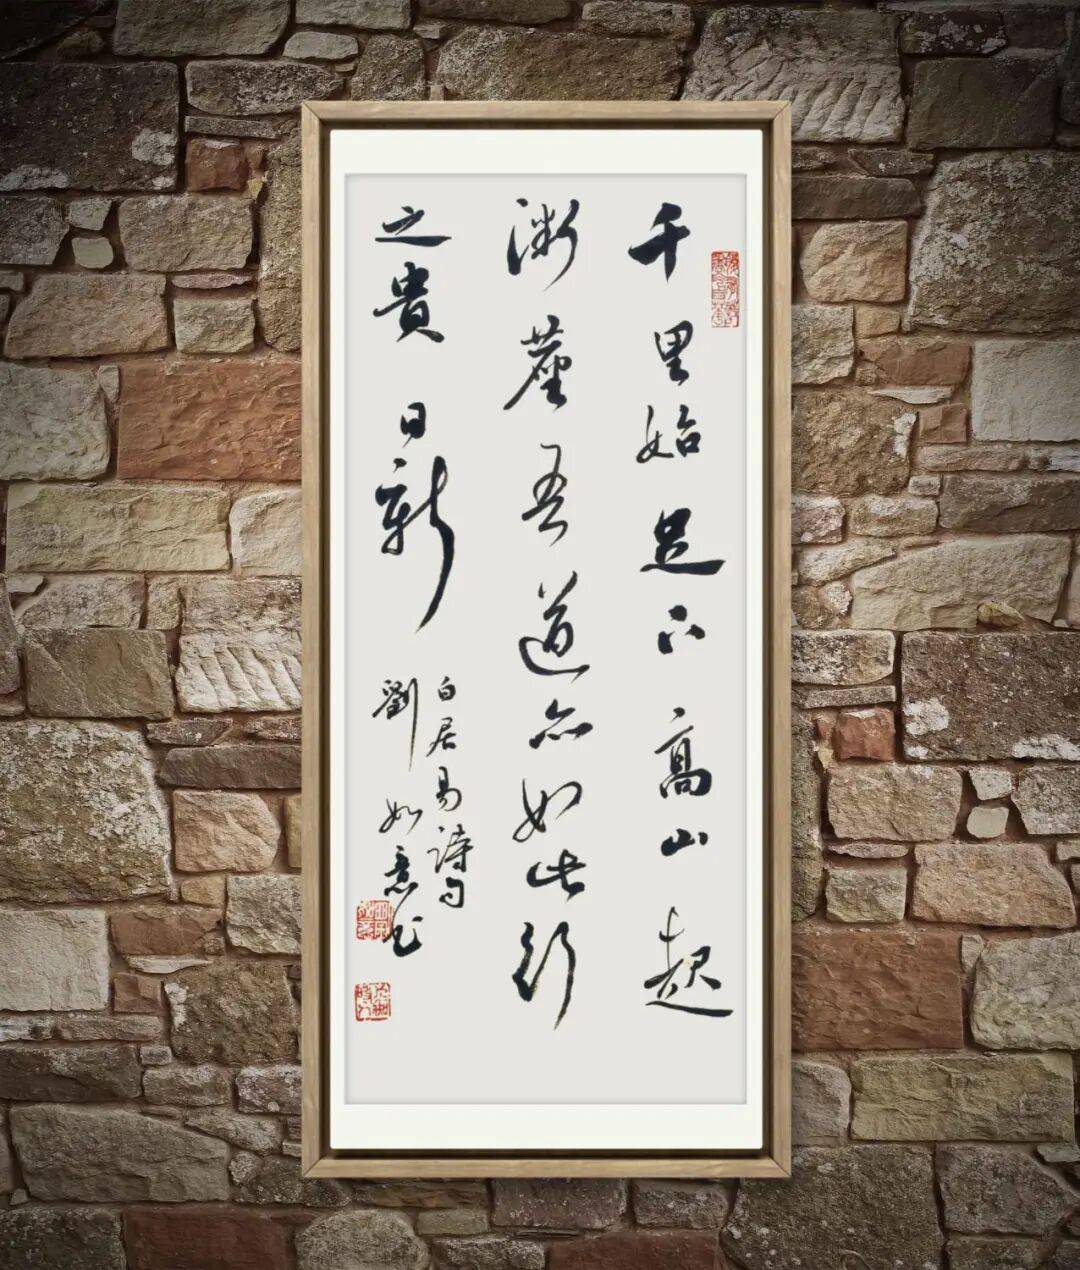 千里始足下高山起
微塵吾道亦如此行
之貴日新
白居易詩句
劉如意书